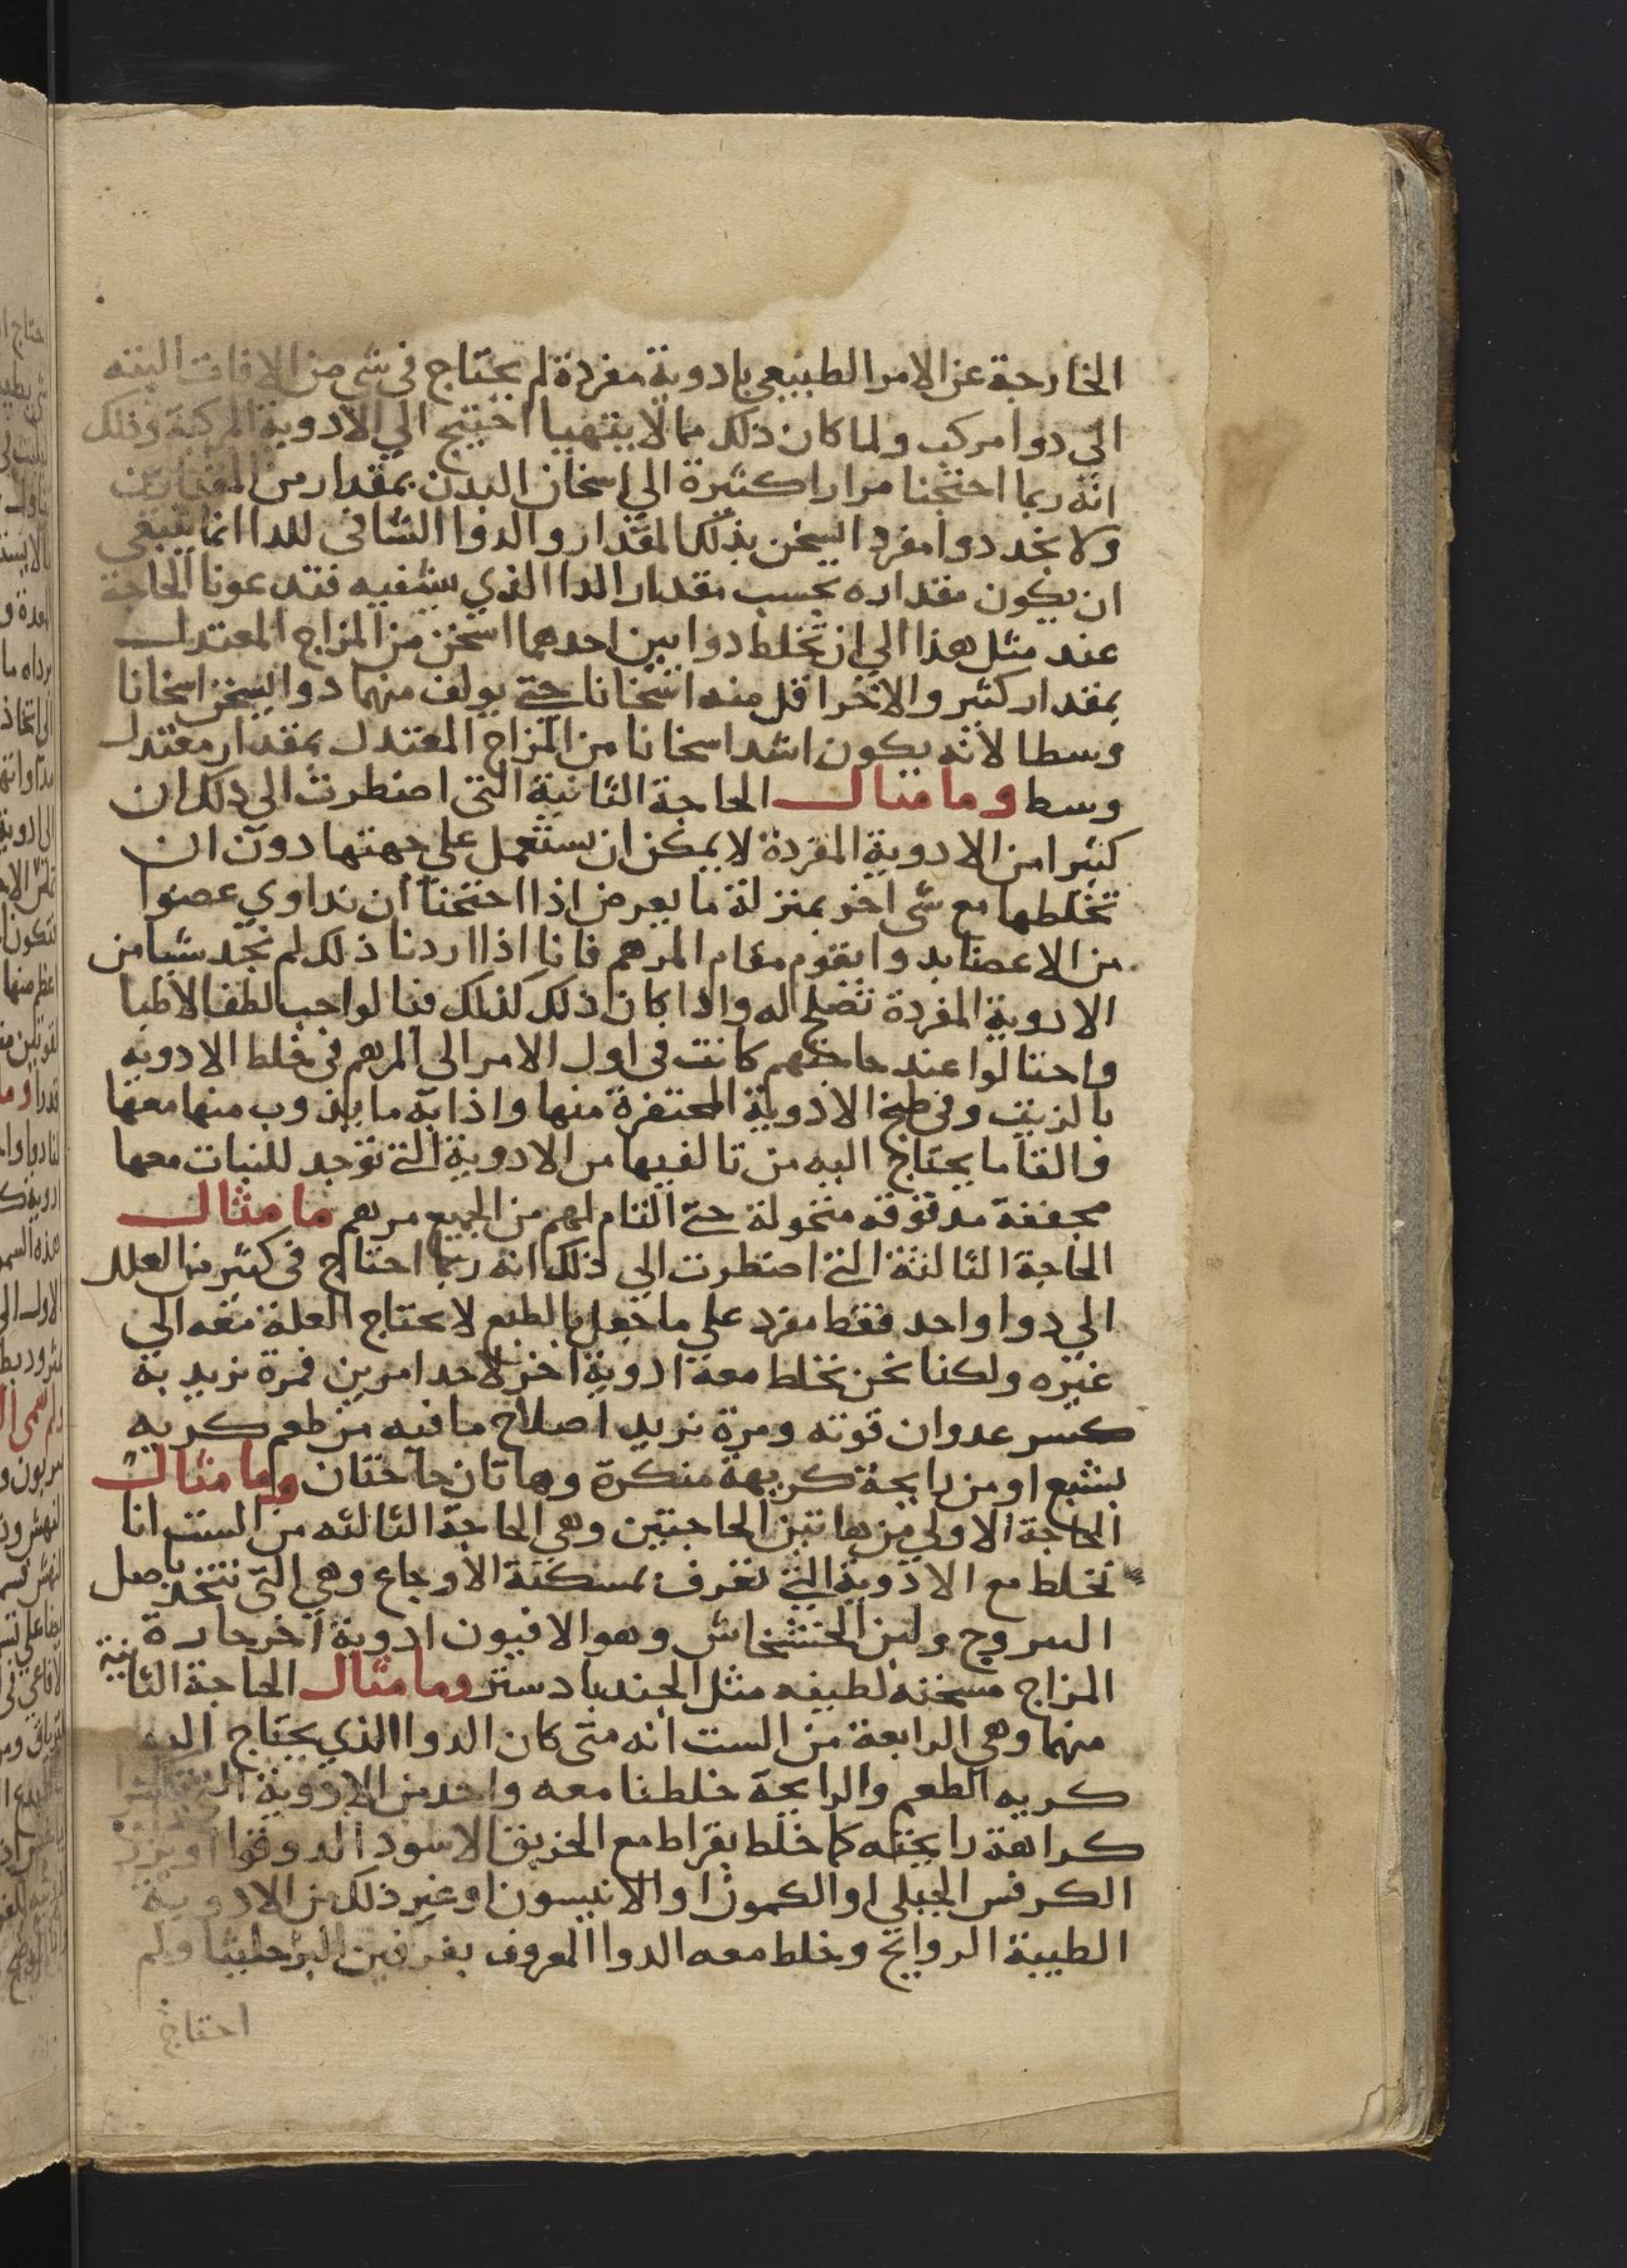 الخارجة عن الامر الطبيعي بادوية مفردة لم يحتاج في شي من الافات البتة
الي دوا مركب ولما كان ذلك مما لا يتهيا احتيج الي الادوية المركبة وذلك
انه ربما احتجنا مرارا كثيرة الي اسخان البدن بمقدار من
ولا نجد دوا مفرد ايسخن بذلك المقدار والدوا الشافي للدا انما ينبغي
ان يكون مقداره بحسب مقدار الدا الذي يشفيه فتدعونا الحاجة
عند مثل هذا الي ان نخلط دوايين احدهما اسخن من المزاج المعتدل
بمقدار كثير والاخر اقل منه اسخانا حتي يولف منهما دوا يسخن اسخانا
وسطا لانه يكون اشد اسخانا من المزاج المعتدل بمقدار معتدل
وسط وما مثال الحاجة الثانية التي اضطرت الي ذلك ان
كثيرا من الادوية المفردة لا يمكن ان يستعمل علي جهتها دون ان
تخلطها مع شي اخر بمنزلة ما يعرض اذا احتجنا ان نداوي عضوا
من الاعضا بدوا يقوم مقام المرهم فانا اذا اردنا ذلك لم نجد شيا من
الادوية المفردة تصلح له واذا كان ذلك كذلك فبالواجب لطف الاطبا
واحتالوا عند حاجتهم كانت في اول الامر الي المرهم في خلط الادوية
بالزيت وفي طبخ الادوية المحتفرة منها واذابة ما يذوب منها معها
والقا ما يحتاج اليه من تاليفها من الادوية التي توجد للنبات معها
مجففة مدقوقه منخولة حتي التام لهم من الجميع مرهم ما مثال
الحاجة الثالثة التي اضطرت الي ذلك انه ربما احتاج في كثير من العلل
الي دوا واحد فقط مفرد علي ما جعل بالطبع لا يحتاج العلة معه الي
غيره ولكنا نحن نخلط معه ادوية اخر لاحد امرين فمرة نريد به
كسر عدوان قوته ومرة نريد اصلاح ما فيه من طعم كريه
بشع او من رايحة كريهة منكرة وهاتان حاجتان وما مثال
الحاجة الاولي من هاتين الحاجتين وهي الحاجة الثالثه من الست انا
نخلط مع الادوية التي تعرف بمسكنة الاوجاع وهي التي تتخذ باصل
اليبروج ولبن الخشخاش وهو الافيون ادوية اخر حارة
المزاج مسخنه لطيفه مثل الجندبادستر وما مثال الحاجة الثانية
منهما وهي الرابعة من الست انه متي كان الدوا الذي يحتاج اليه
كريه الطعم والرايحة خلطنا معه واحد من الادوية
كراهة رايحته كما خلط بقراط مع الخربق الاسود الدوقوا او بزر
الكرفس الجبلي او الكمون او الانيسون او غير ذلك من الادوية
الطيبة الروايح وخلط معه الدوا المعروف ولم
احتاج